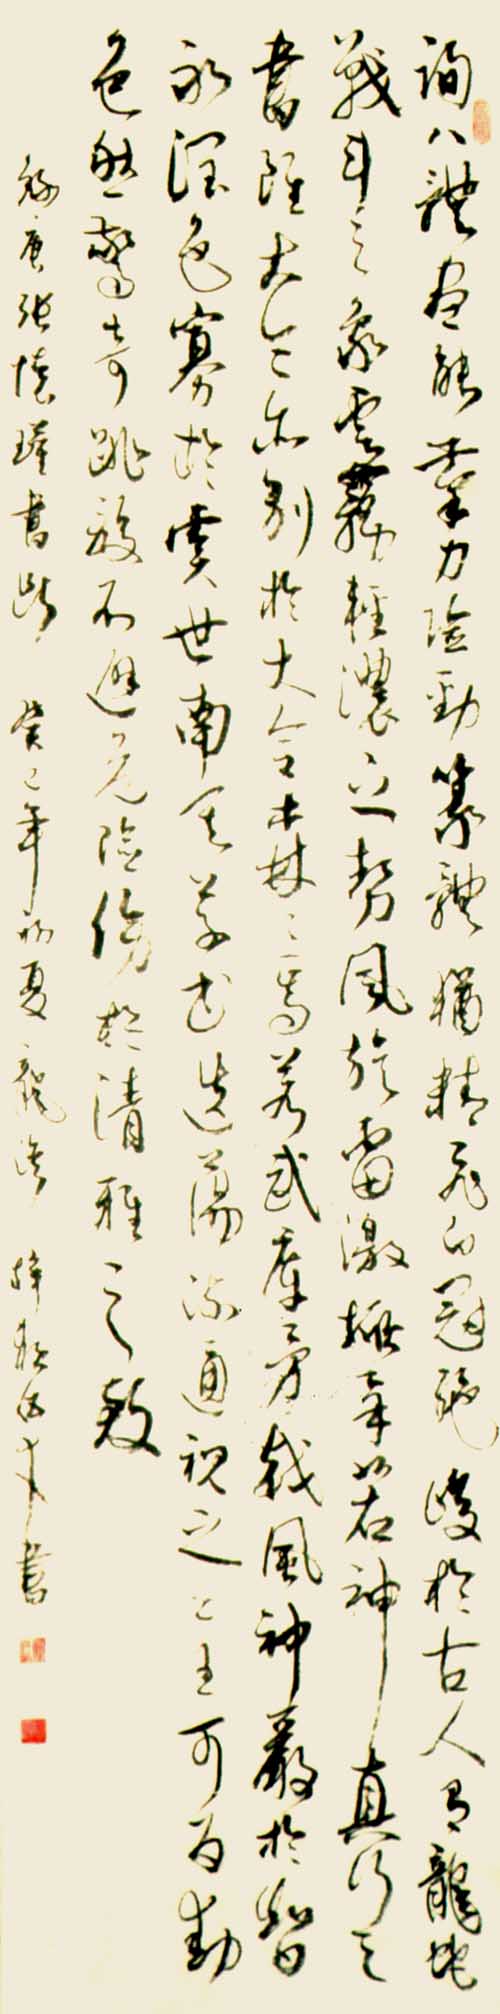 詢八體盡能筆力險勁篆體猶精飛白冠絕峻於古人有龍蛇
戰鬥之象雲霧輕濃之勢風旋雷激操舉若神真行之
書雖大令亦別於大令森森焉若武庫矛戟風神嚴於智
永潤色寡於虞世南其草書迭蕩流通視之二王可為動
色然驚奇跳駿不避危險傷於清雅之致
錄唐張懷瓘書斷 癸巳年初夏 書